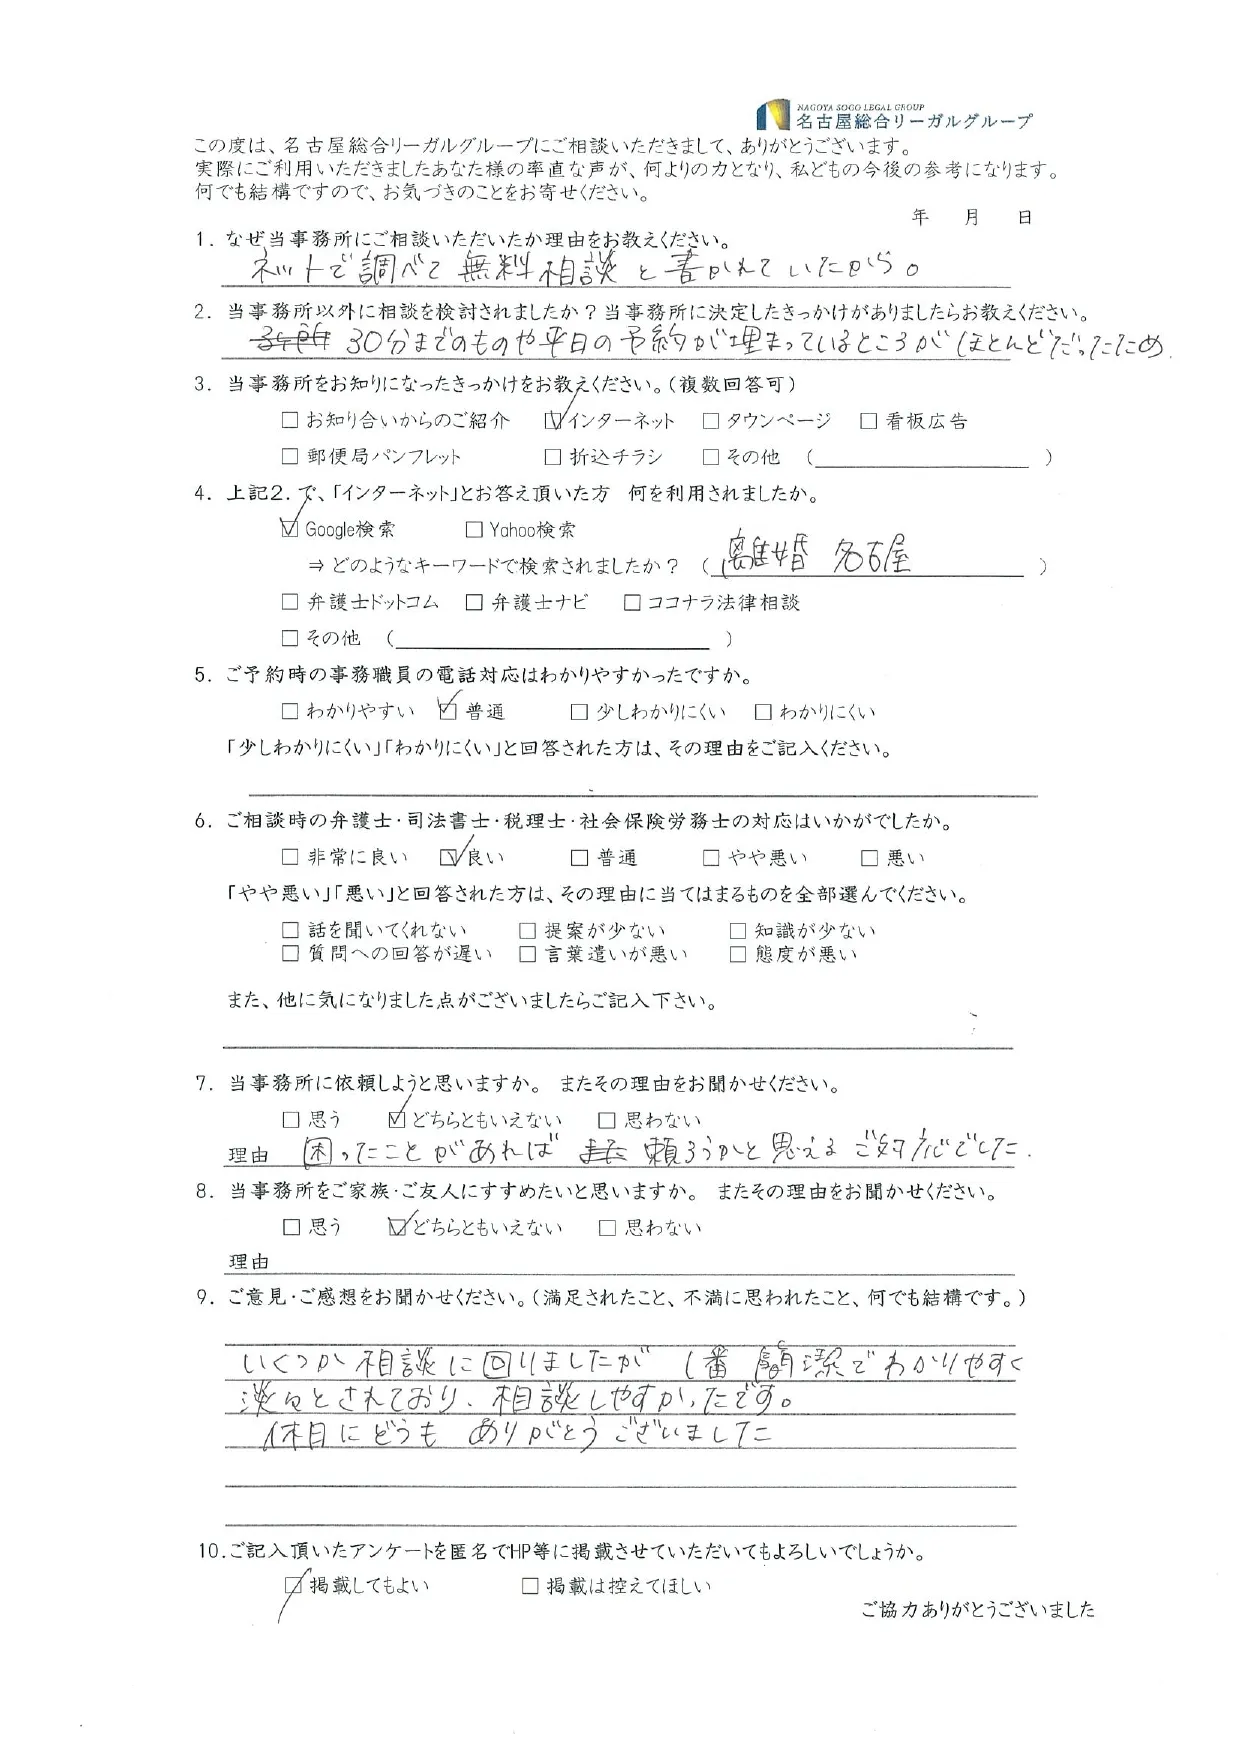 NAGOYA SOGO LEGAL GROUP
名古屋総合リーガルグループ
この度は、名古屋総合リーガルグループにご相談いただきまして、ありがとうございます。
実際にご利用いただきましたあなた様の率直な声が、何よりの力となり、私どもの今後の参考になります。
何でも結構ですので、お気づきのことをお寄せください。
年 月 日
1. なぜ当事務所にご相談いただいたか理由をお教えください。
ネットで調べて無料相談と書かれていたから。
2. 当事務所以外に相談を検討されましたか?当事務所に決定したきっかけがありましたらお教えください。
30分までのものや平日の予約が埋まっているところがほとんどだったため.
3. 当事務所をお知りになったきっかけをお教えください。(複数回答可)
□ お知り合いからのご紹介 ☑ インターネット □ タウンページ □ 看板広告
□ 郵便局パンフレット □ 折込チラシ □ その他 ( )
4. 上記2.で、「インターネット」とお答え頂いた方 何を利用されましたか。
☑ Google検索 □ Yahoo検索
⇒ どのようなキーワードで検索されましたか? ( 離婚 名古屋 )
□ 弁護士ドットコム □ 弁護士ナビ □ ココナラ法律相談
□ その他 ( )
5. ご予約時の事務職員の電話対応はわかりやすかったですか。
□ わかりやすい ☑ 普通 □ 少しわかりにくい □ わかりにくい
「少しわかりにくい」「わかりにくい」と回答された方は、その理由をご記入ください。
6. ご相談時の弁護士・司法書士・税理士・社会保険労務士の対応はいかがでしたか。
□ 非常に良い ☑ 良い □ 普通 □ やや悪い □ 悪い
「やや悪い」「悪い」と回答された方は、その理由に当てはまるものを全部選んでください。
□ 話を聞いてくれない □ 提案が少ない □ 知識が少ない
□ 質問への回答が遅い □ 言葉遣いが悪い □ 態度が悪い
また、他に気になりました点がございましたらご記入下さい。
7. 当事務所に依頼しようと思いますか。 またその理由をお聞かせください。
□ 思う ☑ どちらともいえない □ 思わない
理由 困ったことがあれば また 頼ろうかと思えるご対応でした.
8. 当事務所をご家族・ご友人にすすめたいと思いますか。 またその理由をお聞かせください。
□ 思う ☑ どちらともいえない □ 思わない
理由
9. ご意見・ご感想をお聞かせください。(満足されたこと、不満に思われたこと、何でも結構です。)
いくつか相談に回りましたが 1番 潔でわかりやすく
淡々とされており、相談しやすかったです。
休日にどうも ありがとうございました
10.ご記入頂いたアンケートを匿名でHP等に掲載させていただいてもよろしいでしょうか。
☑ 掲載してもよい □ 掲載は控えてほしい
ご協力ありがとうございました